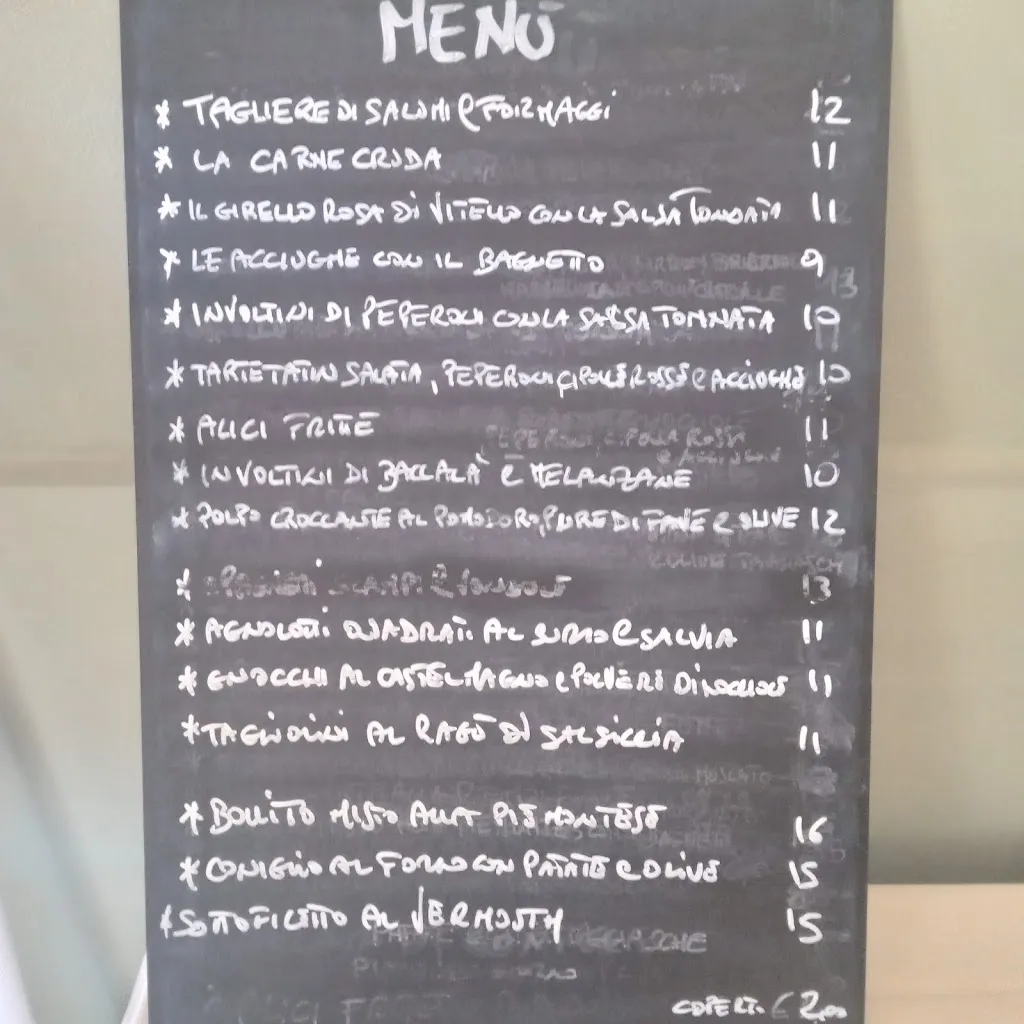 MENÙ
* TAGLIERE DI SALUMI E FORMAGGI 12
* LA CARNE CRUDA 11
* IL GIRELLO ROSA DI VITELLO CON LA SALSA TONNATA 11
* LE ACCIUGHE CON IL BAGNETTO 9
* INVOLTINI DI PEPERONI CON LA SALSA TONNATA 10
* TARTE TATIN SALATA, PEPERONI CIPOLLE ROSSE E ACCIUGHE 10
* ALICI FRITTE 11
* INVOLTINI DI BACCALA' E MELANZANE 10
* POLPO CROCCANTE AL POMODORO, PURE DI FAVE E OLIVE 12
* 13
* AGNOLOTTI QUADRATI AL BURRO E SALVIA 11
* GNOCCHI AL CASTELMAGNO E POLVERE DI NOCCIOLE 11
* TAGLIOLINI AL RAGÙ DI SALSICCIA 11
* BOLLITO MISTO ALLA PIEMONTESE 16
* CONIGLIO AL FORNO CON PATATE E OLIVE 15
* SOTTOFILETTO AL VERMOUTH 15
COPERTI € 2,00